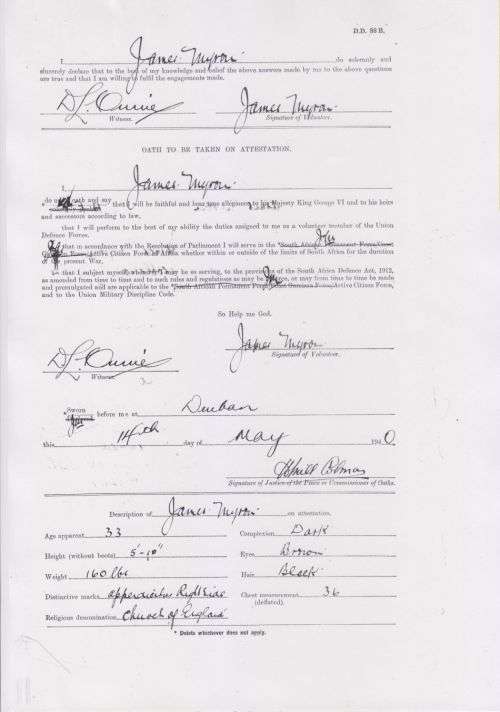 D.D. 53 B.
I, James Myron do solemnly and
sincerely declare that to the best of my knowledge and belief the above answers made by me to the above questions
are true and that I am willing to fulfil the engagements made.
James Myron
Witness. Signature of Volunteer.
OATH TO BE TAKEN ON ATTESTATION.
I, James Myron
that I will be faithful and bear true allegiance to his Majesty King George VI and to his heirs
and successors according to law,
that I will perform to the best of my ability the duties assigned to me as a volunteer member of the Union
Defence Forces,
that in accordance with the Resolution of Parliament I will serve in the *South African Permanent Force/
Active Citizen Force of Africa whether within or outside of the limits of South Africa for the duration
of present War,
that I subject myself when I may be so serving, to the provisions of the South Africa Defence Act, 1912,
as amended from time to time and to such rules and regulations as may be or may from time to time be made
and promulgated and are applicable to the *South African Permanent Force/Active Citizen Force,
and to the Union Military Discipline Code.
So Help me God.
James Myron
Witness. Signature of Volunteer.
*Sworn before me at Durban
this 14th day of May 1940.
Signature of Justice of the Peace or Commissioner of Oaths.
Description of James Myron on attestation.
Age apparent 33 Complexion Dark
Height (without boots) 5'-10" Eyes Brown
Weight 160 lbs Hair Black
Distinctive marks Right Chest measurement 36
(deflated).
Religious denomination Church of England
* Delete whichever does not apply.